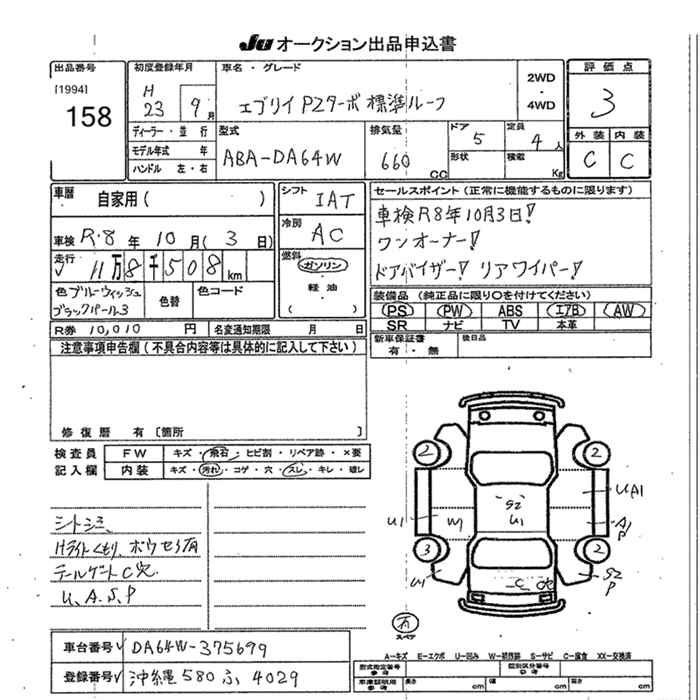 JU オークション出品申込書
出品番号 初度登録年月 車名・グレード 評価点
[1994] H
158 23 9月 エブリイ PZターボ 標準ルーフ 2WD ・ 4WD 3
外装 内装
C C
ディーラー・並行 型式 排気量 ドア 5 定員 4人
モデル年式 年 ABA-DA64W 660 CC 形状 積載 Kg
ハンドル 左・右
車暦 自家用( ) シフト IAT セールスポイント(正常に機能するものに限ります)
車検R8年10月3日!
冷房 AC ワンオーナー!
車検 R・8年 10月(3日)
走行 11万8千508km 燃料 ガソリン ドアバイザー! リアワイパー!
軽油
( )
色 ブルーウィッシュ 色替 色コード 装備品(純正品に限り○を付けてください)
ブラックパール3 PS PW ABS エアB AW
R券 10,010円 名変通知期限 月 日 SR ナビ TV 本革
注意事項申告欄(不具合内容等は具体的に記入して下さい) 新車保証書 後日品
有・無
修復歴 有 〔箇所
検査員 FW キズ・飛石・ヒビ割・リペア跡・×要
記入欄 内装 キズ・汚れ・コゲ・穴・スレ・キレ・破レ
シトシミ
Hライトくもり、
テールゲートC穴
U、A、S、P
2 2
UA1
S2
U1 W1 U1 A1
P
3 2
U1 C C穴 S2
P
有
スペア
車台番号 DA64W-375699
A―キズ E―エクボ U―凹み W―補修跡 S―サビ C―腐食 XX―交換済
登録番号 沖縄 580 ふ 4029
型式指定番号 類別区分番号
参考 参考
車庫証明用 長さ cm 幅 cm 高さ cm
参考